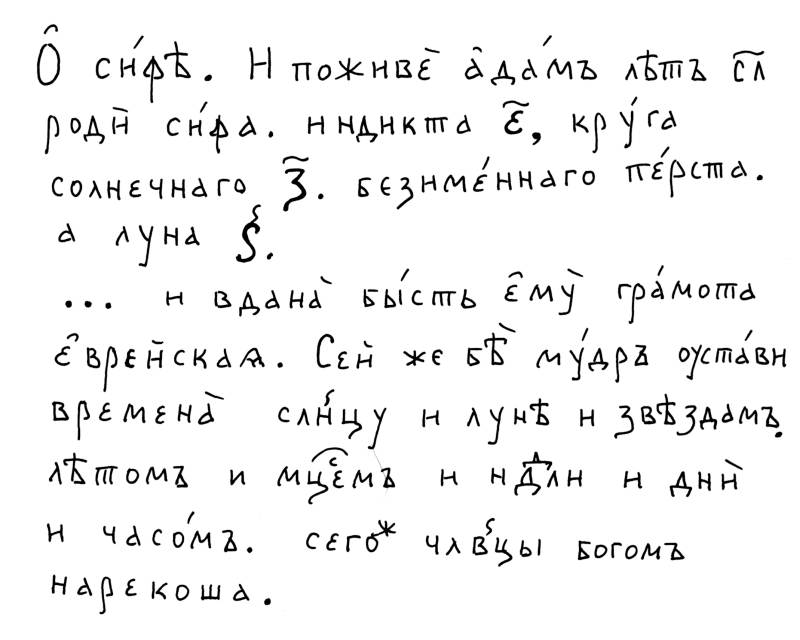 Ѻ҆ си́фѣ. И поживѐ а҆да́мъ лѣтъ с҃л
родѝ си́фа. индикта є҃, кру́га
солнечнаго з҃. безиме́ннаго пе́рста.
а луна ѕ҃.
... и вдана̀ бы́сть є҆мꙋ̀ гра́мота
є҆врейская. Сей же бѣ̀ мꙋ́дръ оуста́ви
времена̀ слн҃цу и лунѣ и звѣздамъ.
лѣтомъ и мцⷭ҇емъ и нⷣли и днѝ
и часо́мъ. сегоⷤ члв҃цы богомъ
нарекоша.